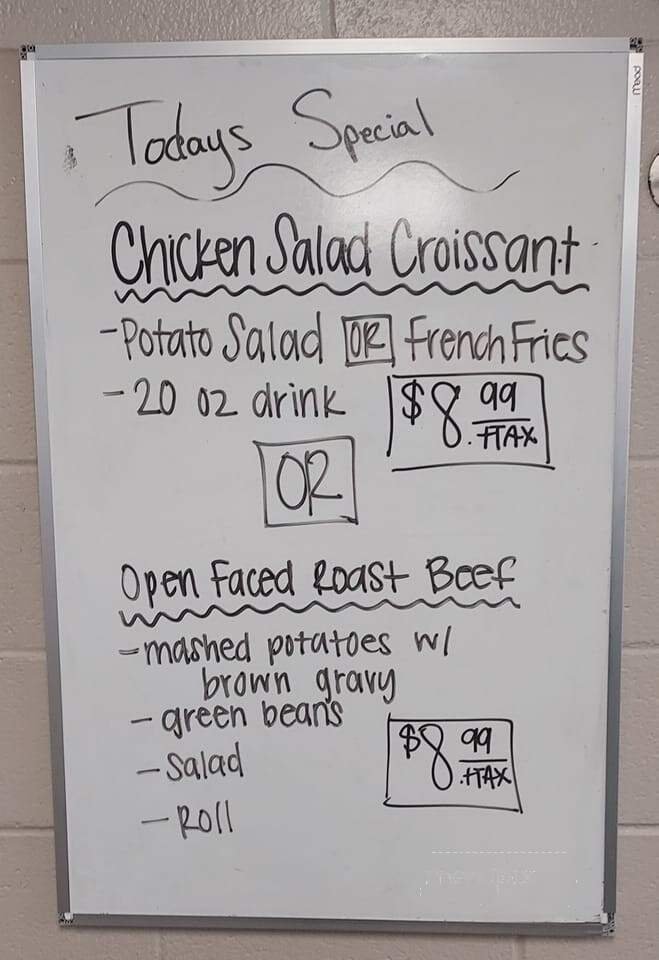 Todays Special
Chicken Salad Croissant
- Potato Salad OR French Fries
- 20 oz drink
$8.99
+TAX
OR
Open Faced Roast Beef
- mashed potatoes w/
brown gravy
- green beans
- Salad
- Roll
$8.99
+TAX